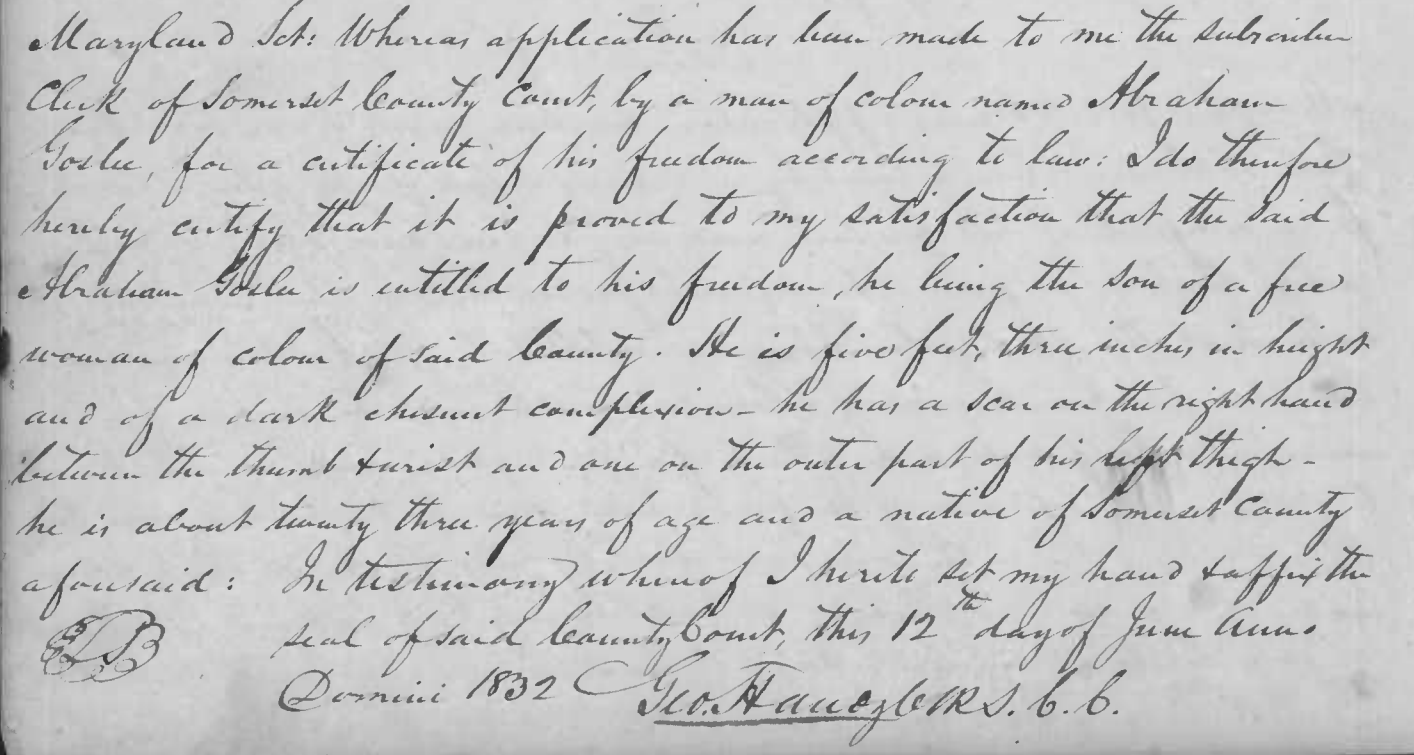 Maryland Sct: Whereas application has been made to me the subscriber
Clerk of Somerset County Court, by a man of colour named Abraham
Goslee, for a certificate of his freedom according to law: I do therefore
hereby certify that it is proved to my satisfaction that the said
Abraham Goslee is entitled to his freedom, he being the son of a free
woman of colour of said County. He is five feet, three inches in height
and of a dark chesnut complexion - he has a scar on the right hand
between the thumb & wrist and one on the outer part of his left thigh -
he is about twenty three years of age and a native of Somerset County
aforesaid: In testimony whereof I hereto set my hand & affix the
seal of said County Court, this 12th day of June Anno
Domini 1832 Geo. Handy Clk S. C. C.